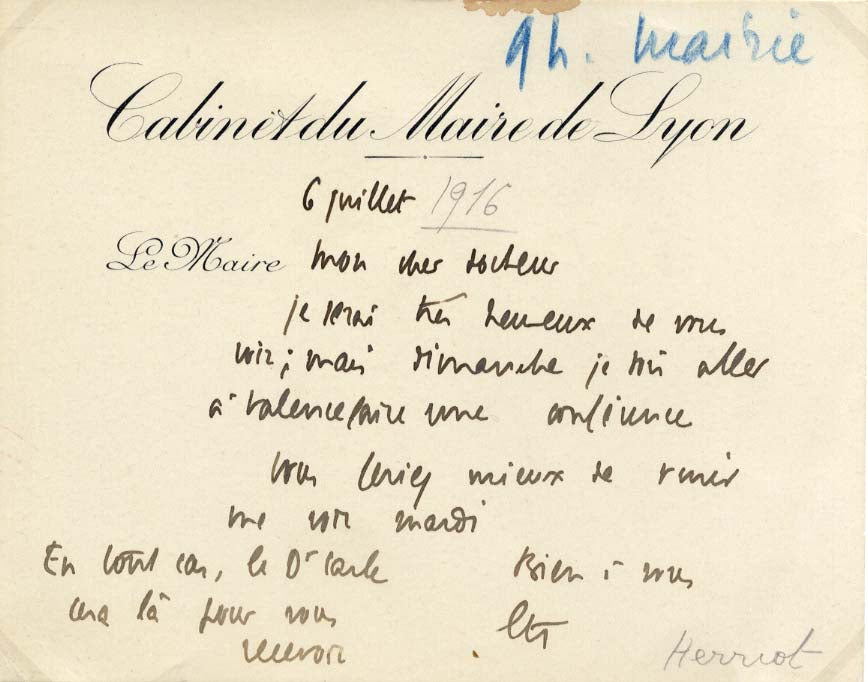 9h. Mairie
Cabinet du Maire de Lyon
6 juillet 1916
Le Maire mon cher docteur
je serai très heureux de vous
voir ; mais dimanche je dois aller
à Valence faire une conférence
Vous feriez mieux de venir
me voir mardi
En tout cas, le Dr
sera là pour vous
recevoir
Bien à vous
Herriot